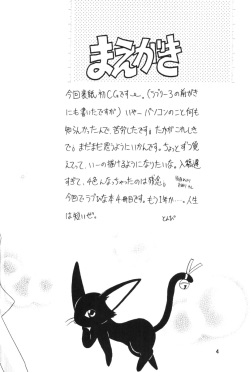 まえがき
今回表紙初CGです〜。(ラブリー3の前がき
にも書いたですが)いやーパソコンのこと何も
知らんかったんで、苦労したです。たかがこれしき
で。まだまだ思うようにいかんです。ちょっとずつ覚
えてって、いーの描けるようになりたいな。入稿遅
すぎて、4色んなっちゃったのは残念。
今回でラブな本4冊目です。もう1年か…。人生
は短いぜ。
とんび
4